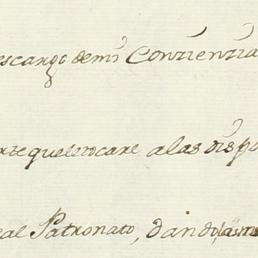 escargo demi Conzienzia
rte que letocare alas dispo
eal Patronato, dandolas